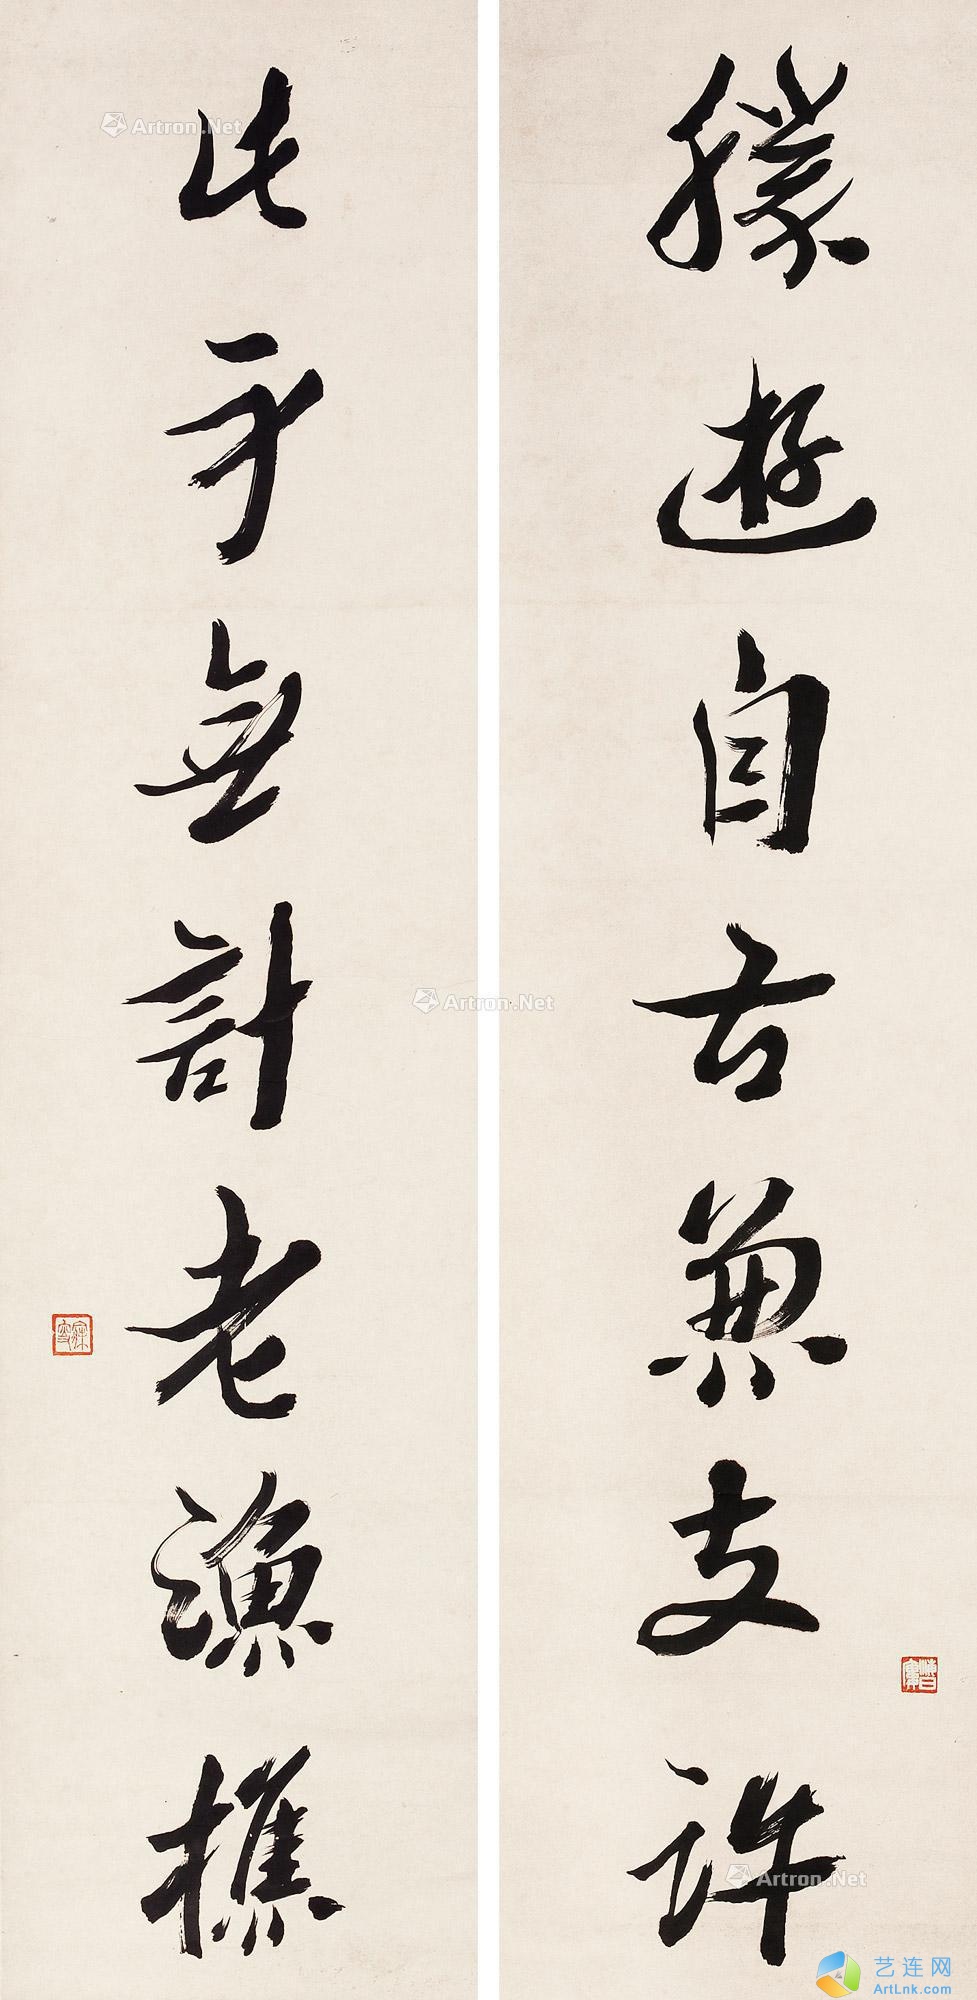 勝遊自古兼支許
此身無計老漁樵
Artron.Net
Artron.Net
Artron.Net
艺连网
ArtLnk.com